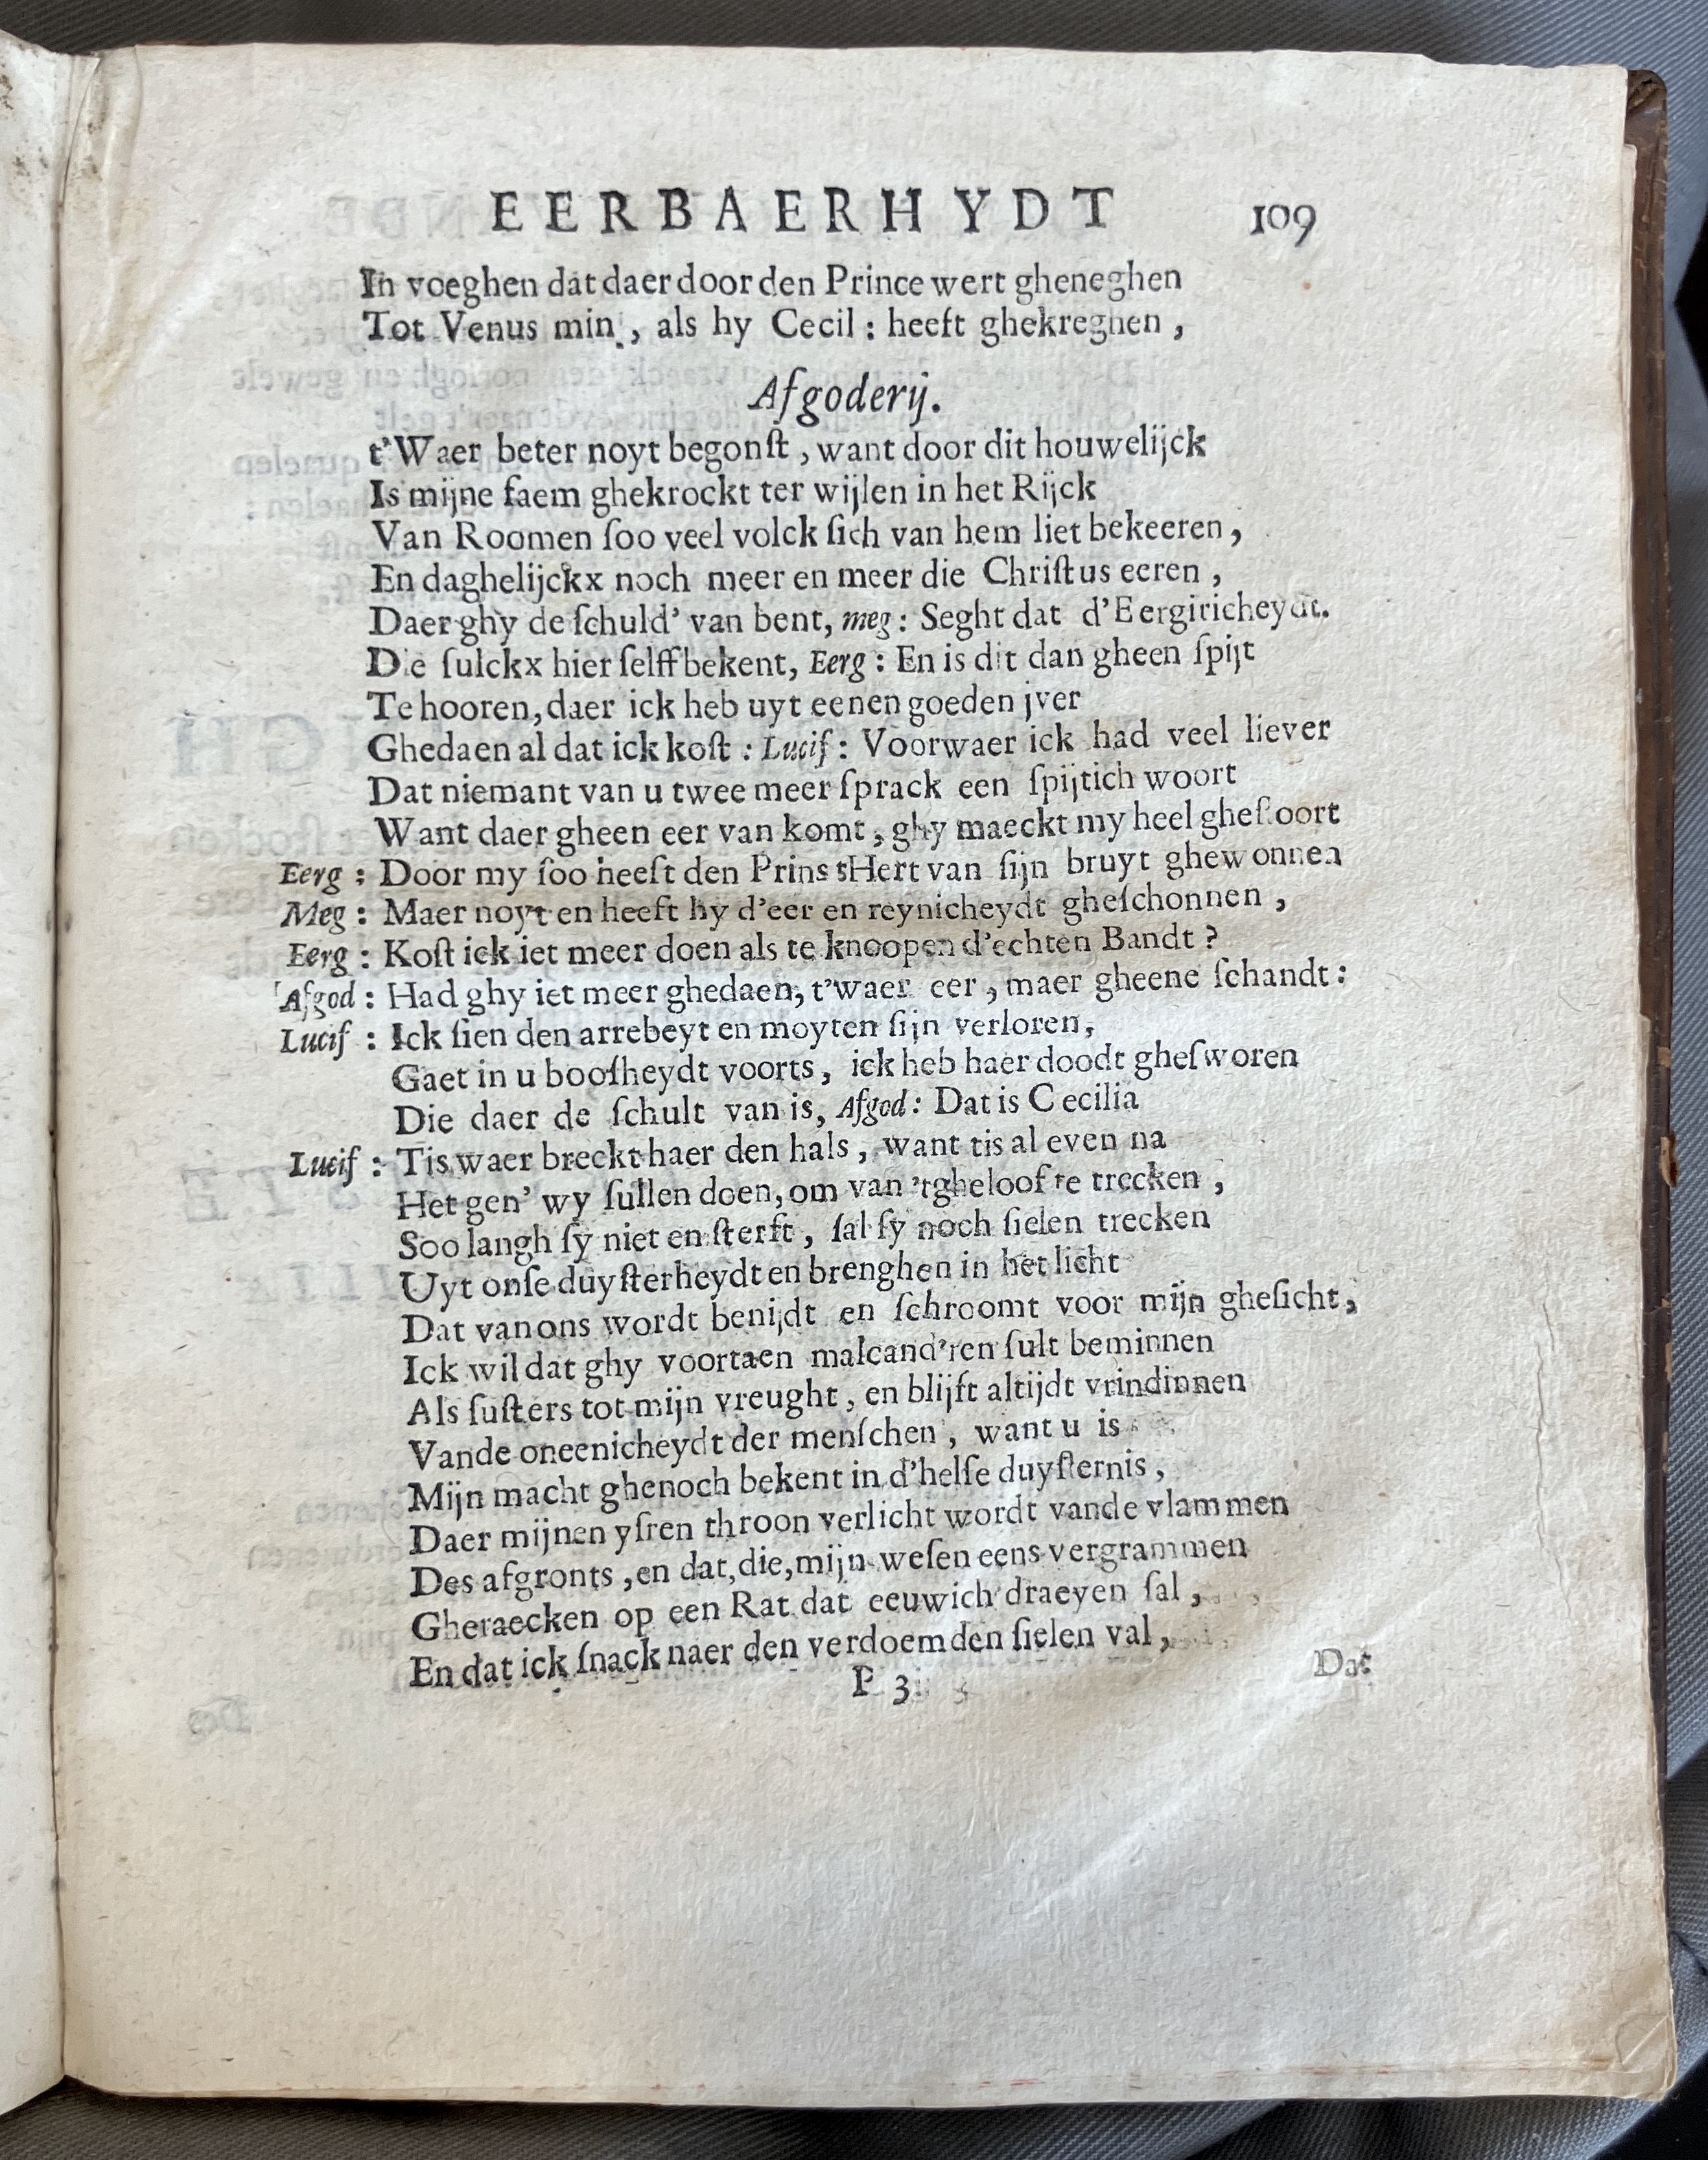 EERBAERHYDT 109
In voeghen dat daer door den Prince wert gheneghen
Tot Venus min, als hy Cecil: heeft ghekreghen,
Afgoderij.
t'Waer beter noyt begonſt, want door dit houwelijck
Is mijne faem ghekrockt ter wijlen in het Rijck
Van Roomen ſoo veel volck ſich van hem liet bekeeren,
En daghelijckx noch meer en meer die Chriſtus eeren,
Daer ghy de ſchuld' van bent, meg: Seght dat d'Eergiricheydt.
Die ſulckx hier ſelff bekent, Eerg: En is dit dan gheen ſpijt
Te hooren, daer ick heb uyt eenen goeden jver
Ghedaen al dat ick koſt: Lucif: Voorwaer ick had veel liever
Dat niemant van u twee meer ſprack een ſpijtich woort
Want daer gheen eer van komt, ghy maeckt my heel gheſtoort
Eerg: Door my ſoo heeft den Prins tHert van ſijn bruyt ghewonnen
Meg: Maer noyt en heeft hy d'eer en reynicheydt gheſchonnen,
Eerg: Koſt ick iet meer doen als te knoopen d'echten Bandt?
Afgod: Had ghy iet meer ghedaen, t'waer eer, maer gheene ſchandt:
Lucif: Ick ſien den arrebeyt en moyten ſijn verloren,
Gaet in u booſheydt voorts, ick heb haer doodt gheſworen
Die daer de ſchult van is, Afgod: Dat is Cecilia
Lucif: Tis waer breckt haer den hals, want tis al even na
Het gen' wy ſullen doen, om van 'tgheloof te trecken,
Soo langh ſy niet en ſterft, ſal ſy noch ſielen trecken
Uyt onſe duyſterheydt en brenghen in het licht
Dat van ons wordt benijdt en ſchroomt voor mijn gheſicht,
Ick wil dat ghy voortaen malcand'ren ſult beminnen
Als ſuſters tot mijn vreught, en blijft altijdt vrindinnen
Vande oneenicheydt der menſchen, want u is
Mijn macht ghenoch bekent in d'helſe duyſternis,
Daer mijnen yſren throon verlicht wordt vande vlammen
Des afgronts, en dat, die, mijn weſen eens vergrammen
Gheraecken op een Rat dat eeuwich draeyen ſal,
En dat ick ſnack naer den verdoemden ſielen val,
P 3 Dat